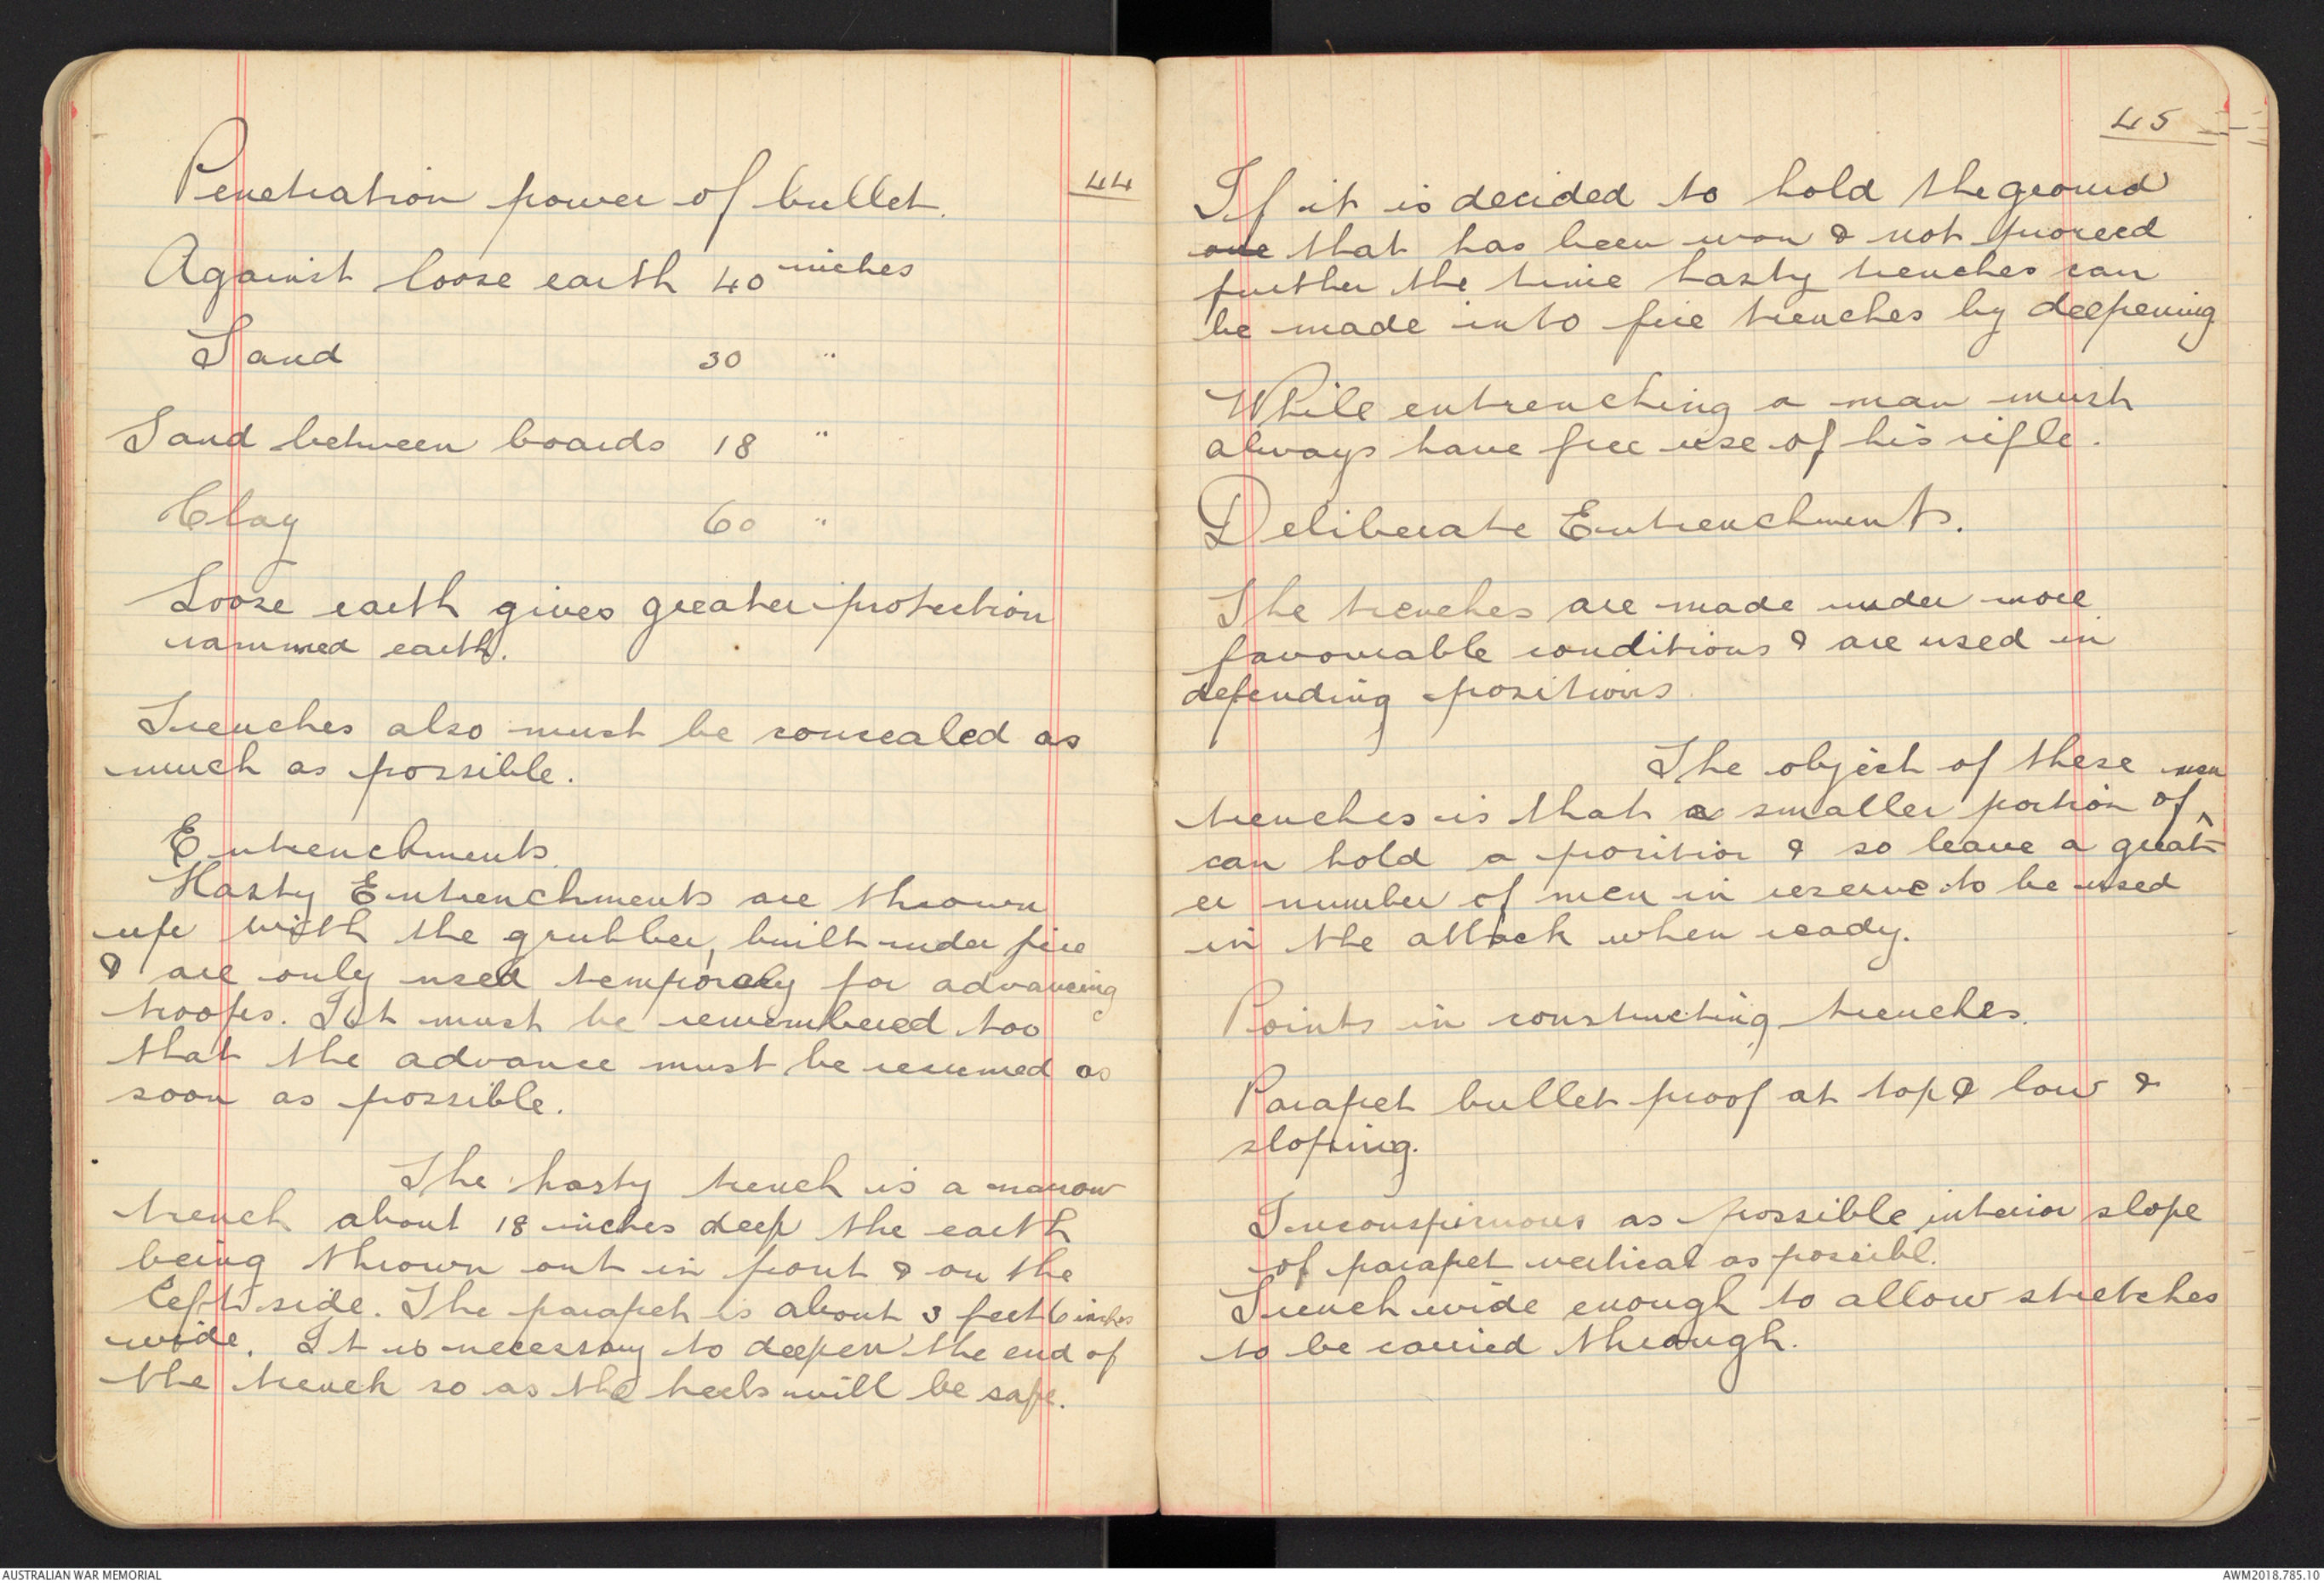 44
Penetration power of bullet.
Against loose earth 40 inches
Sand 30 "
Sand between boards 18 "
Clay 60 "
Loose earth gives greater protection
rammed earth.
Trenches also must be concealed as
much as possible.
Entrenchments.
Hasty Entrenchments are thrown
up with the grubber, built under fire
& are only used temporaly for advancing
troops. It must be remembered too
that the advance must be resumed as
soon as possible.
The hasty trench is a narrow
trench about 18 inches deep the earth
being thrown out in front & on the
left side. The parapet is about 3 feet 6 inches
wide. It is necessary to deepen the end of
the trench so as the heels will be safe.
45
If it is decided to hold the ground
one that has been won & not proceed
further the time hasty trenches can
be made into fire trenches by deepening
While entrenching a man must
always have free use of his rifle.
Deliberate Entrenchments.
The trenches are made under more
favourable conditions & are used in
defending positions.
The object of these
trenches is that a smaller portion of men
can hold a position & so leave a great-
er number of men in reserve to be used
in the attack when ready.
Points in constructing trenches.
Parapet bullet proof at top & low &
sloping.
Inconspicuous as possible, interior slope
of parapet vertical as possibl.
Trench wide enough to allow stretches
to be carried through.
AUSTRALIAN WAR MEMORIAL
AWM2018.785.10